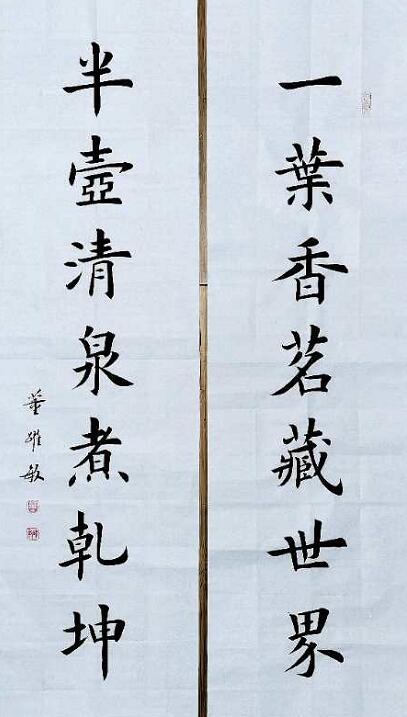 一葉香茗藏世界
半壺清泉煮乾坤
董躍敏